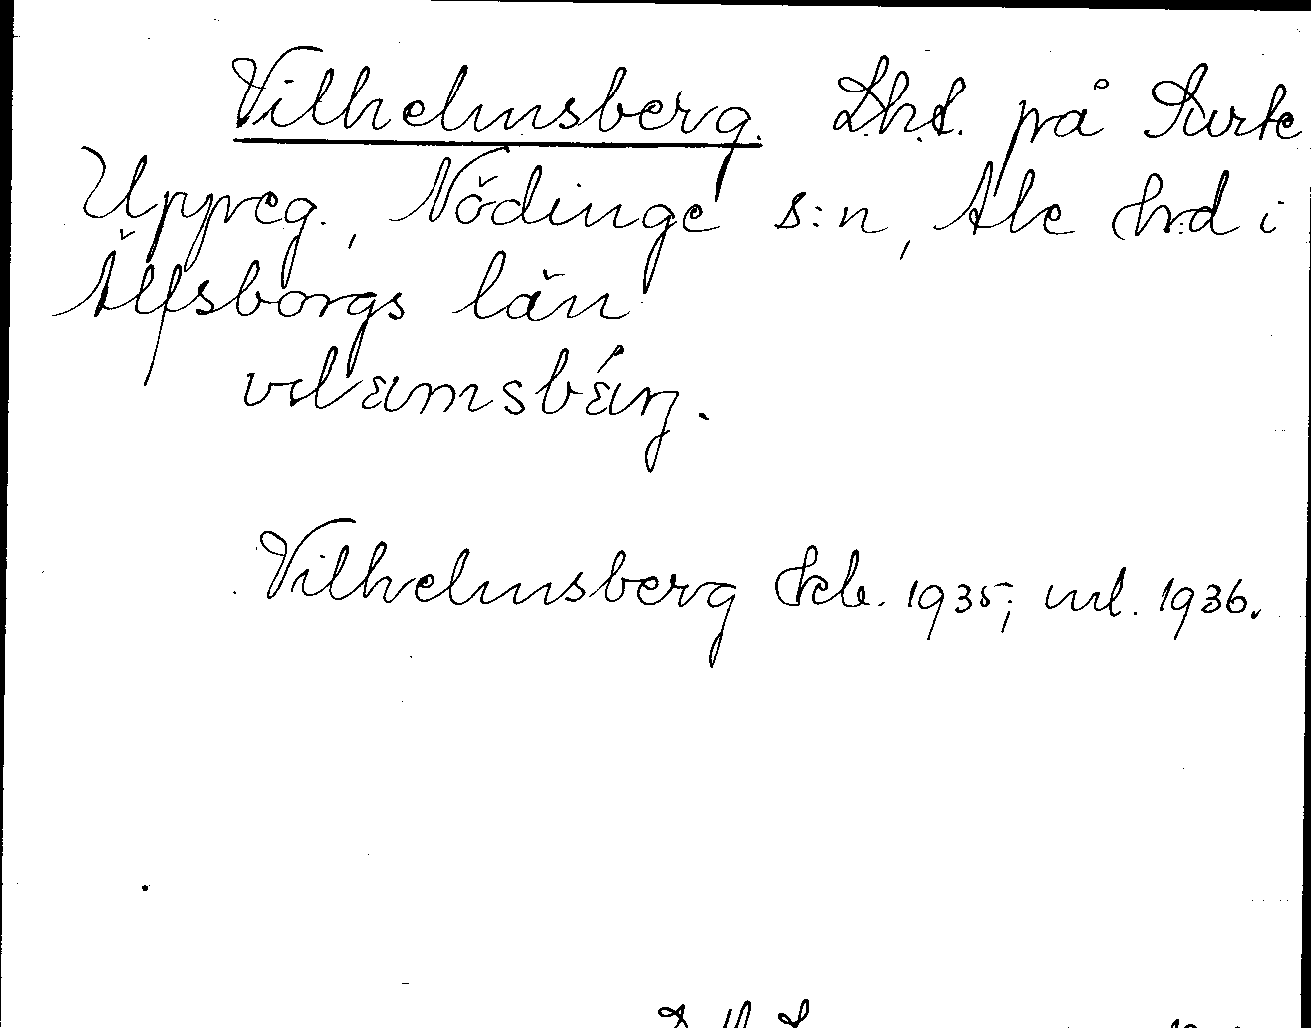 Vilhelmsberg. Lht. på Surte
Uppreg., Nödinge s:n, Ale hrd i
Älfsborgs län
vɩlamsbárj.
Vilhelmsberg Jrb. 1935; ml. 1936.